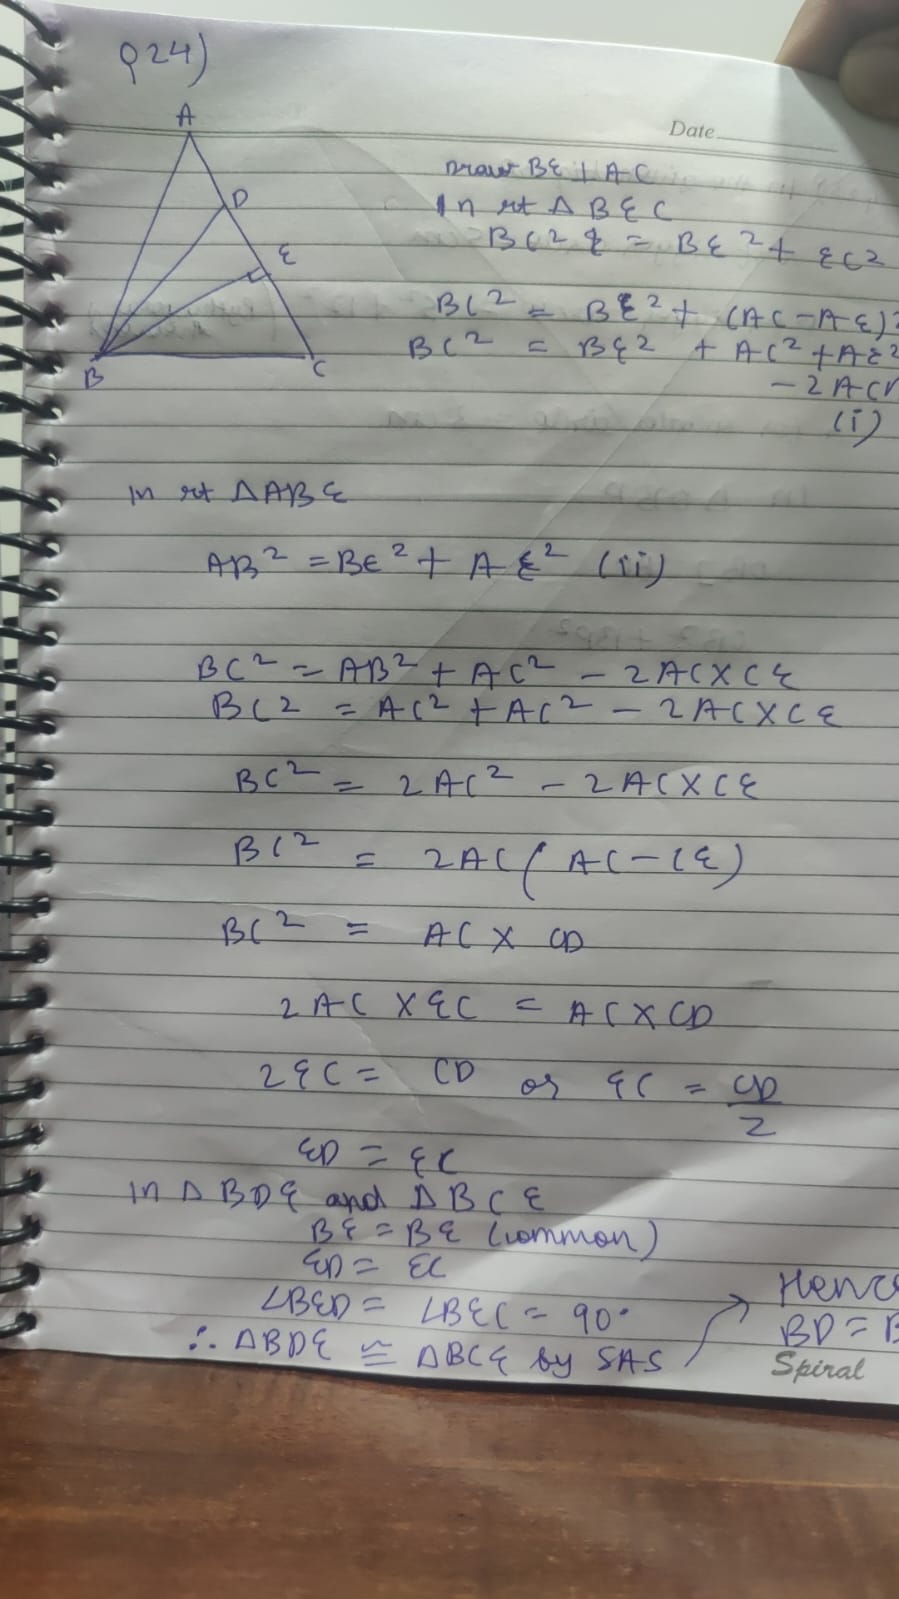 Q24)
Date
A
D
E
B
C
Draw BE ⊥ AC
In rt Δ BEC
BC2 = BE2 + EC2
BC2 = BE2 + (AC-AE)2
BC2 = BE2 + AC2 + AE2
- 2AC
(i)
In rt ΔABE
AB2 = BE2 + AE2 (ii)
BC2 = AB2 + AC2 - 2AC×CE
BC2 = AC2 + AC2 - 2AC×CE
BC2 = 2AC2 - 2AC×CE
BC2 = 2AC(AC-CE)
BC2 = AC × CD
2AC × EC = AC×CD
2EC = CD or EC = CD/2
ED = EC
In Δ BDE and ΔBCE
BE = BE (common)
ED = EC
∠BED = ∠BEC = 90°
∴ ΔBDE ≅ ΔBCE by SAS
Hence
BD = B
Spiral